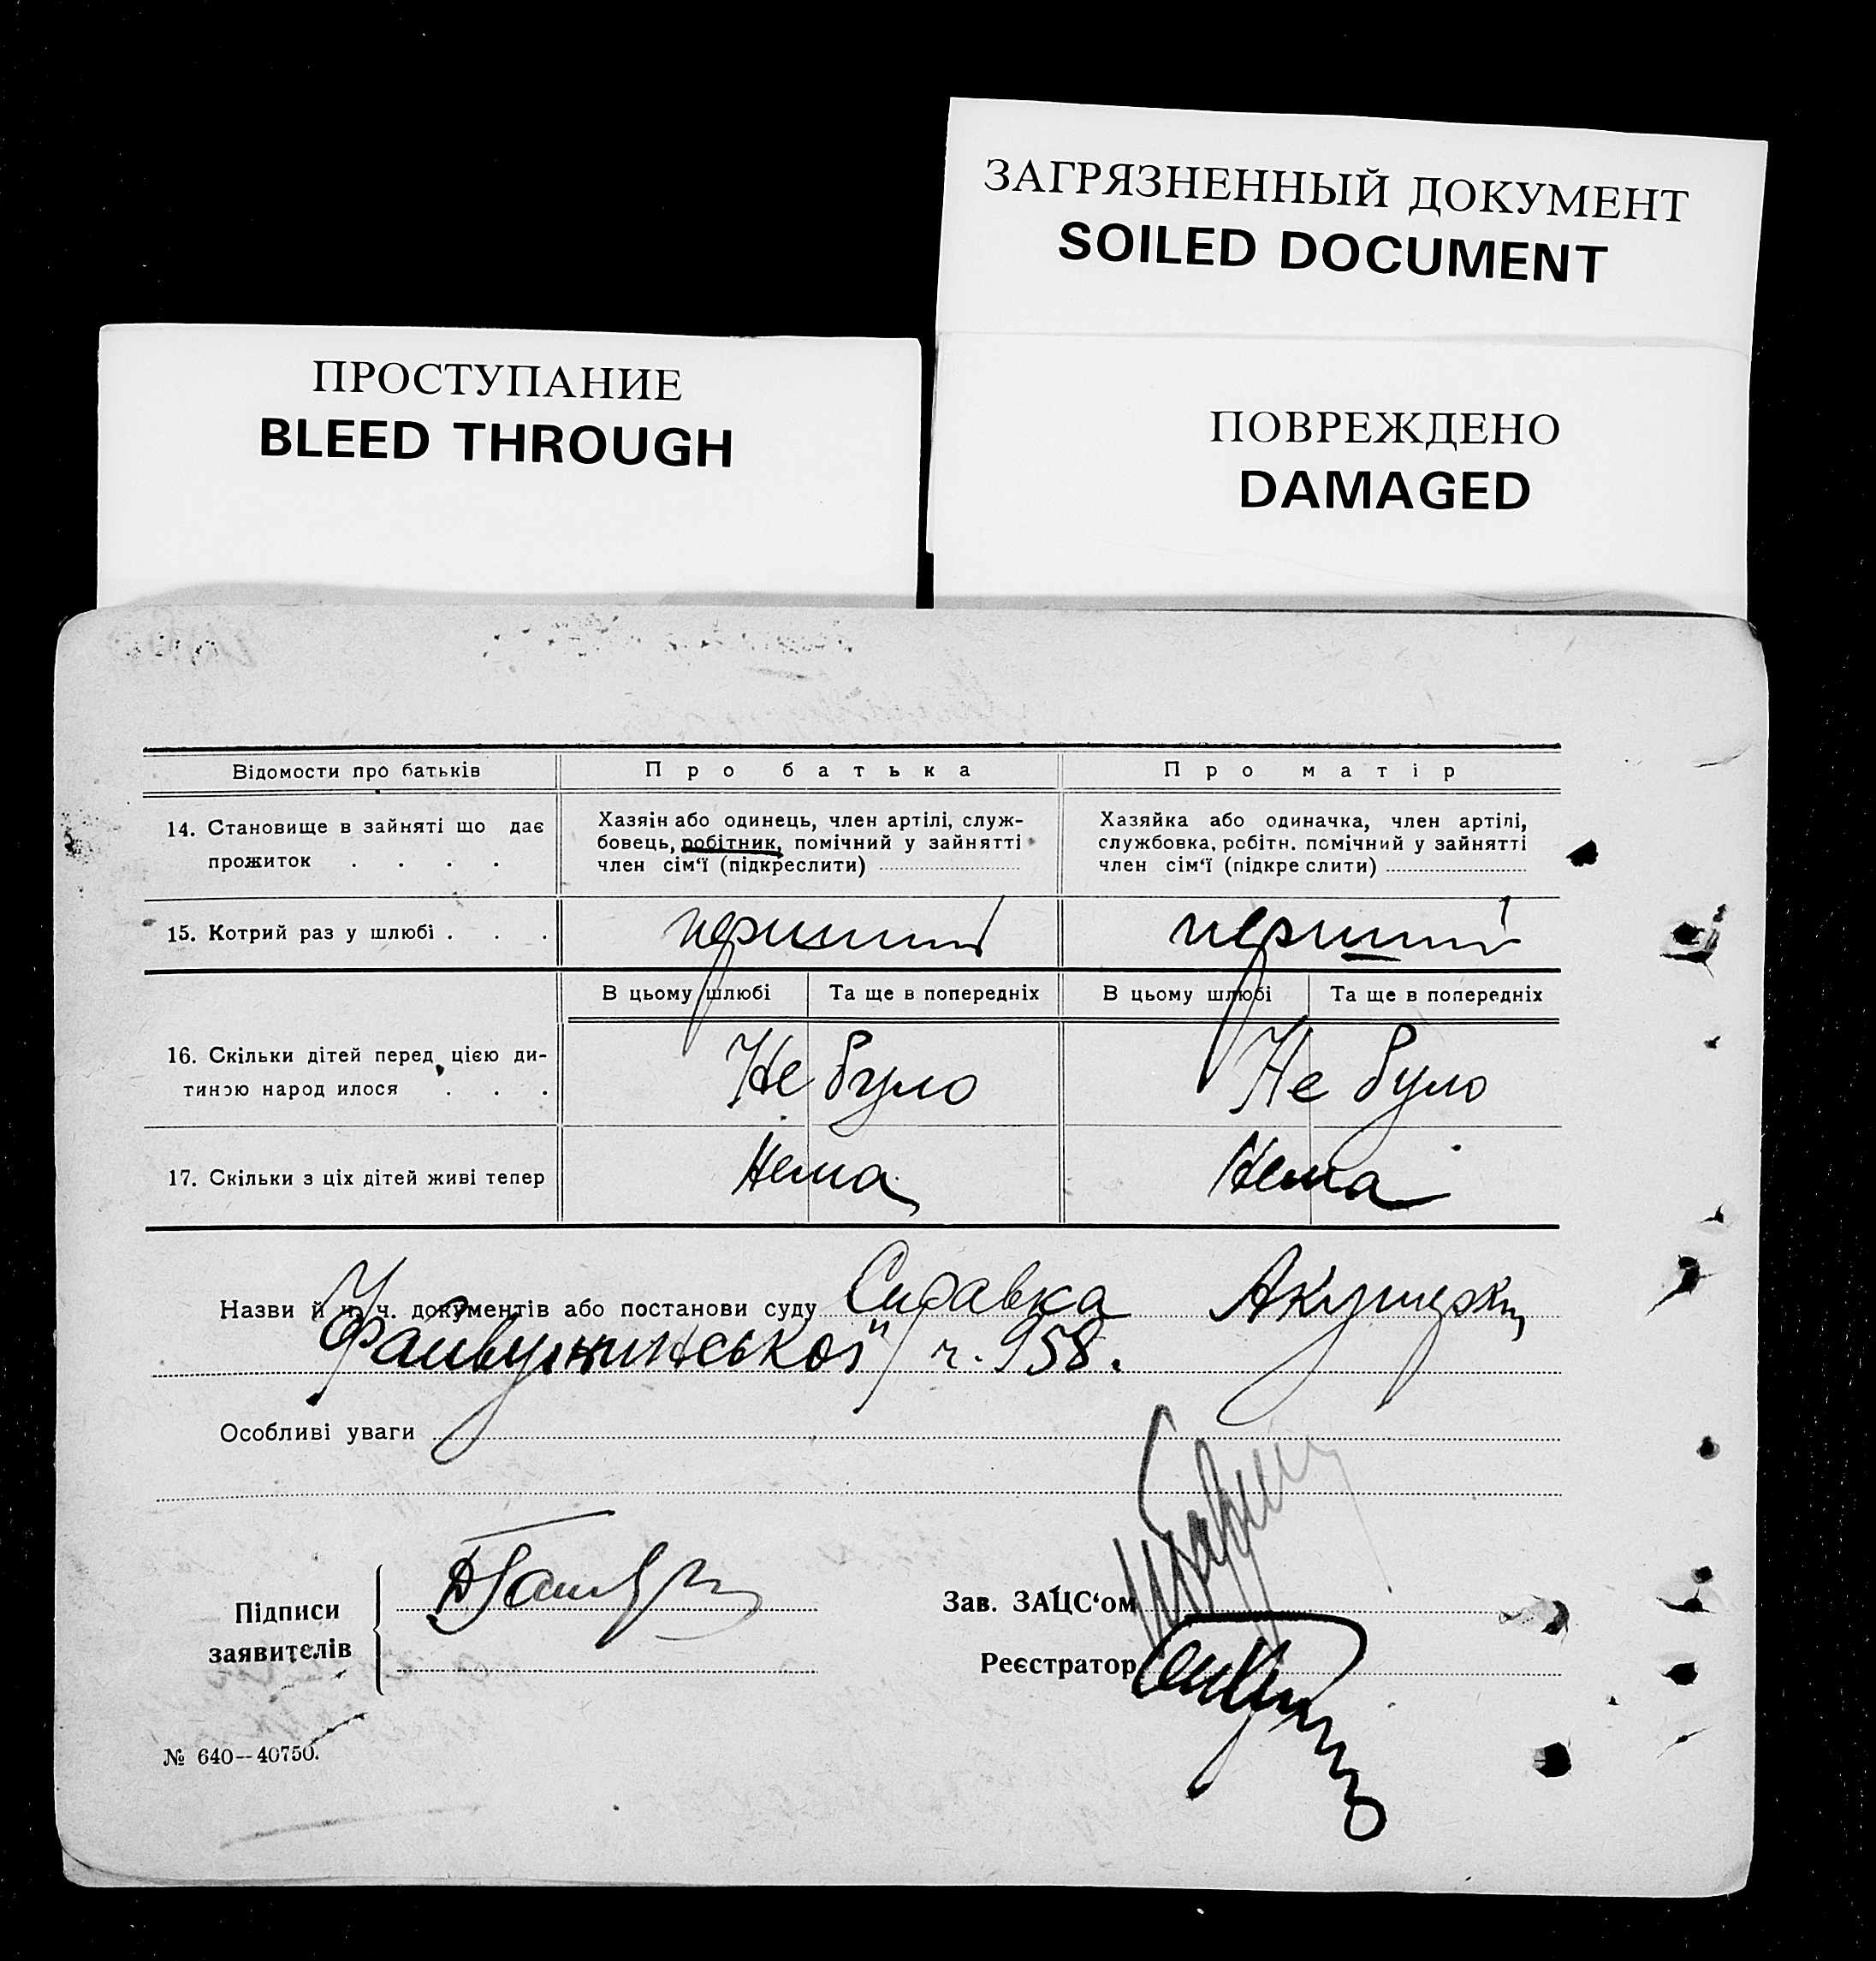 ЗАГРЯЗНЕННЫЙ ДОКУМЕНТ
SOILED DOCUMENT
ПРОСТУПАНИЕ
BLEED THROUGH
ПОВРЕЖДЕНО
DAMAGED
Відомости про батьків
Про батька
Про матір
14. Становище в зайняті що дає
прожиток . . . .
Хазяін або одинець, член артілі, служ-
бовець, робітник, помічний у зайнятті
член сім‘ї (підкреслити)
Хазяйка або одиначка, член артілі,
службовка, робітн. помічний у зайнятті
член сім‘ї (підкре слити)
15. Котрий раз у шлюбі . . .
перший
перший
В цьому шлюбі
Та ще в попередніх
В цьому шлюбі
Та ще в попередніх
16. Скільки дітей перед цією ди-
тиною народ илося . . .
Не було
Не було
17. Скільки з ціх дітей живі тепер
Нема
Нема
Назви й ч. ч. документів або постанови суду Справка Акушерки
ч. 958.
Особливі уваги
Підписи
заявителів
Зав. ЗАЦС‘ом
Реєстратор
№ 640—40750.